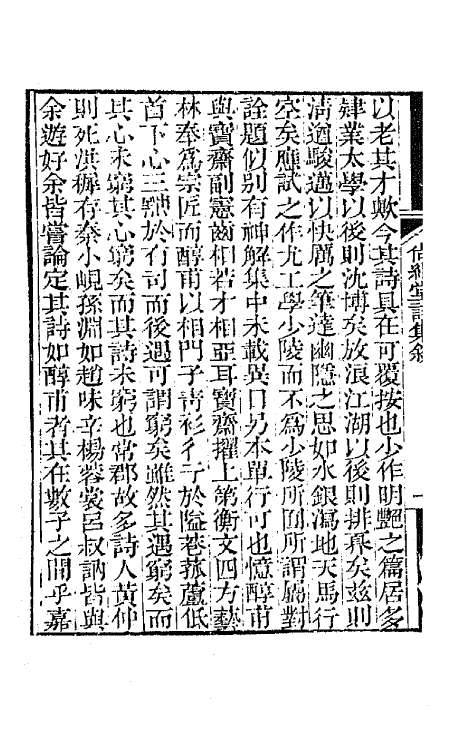 以老其才歟今其詩具在可覆按也少作明艷之篇居多
肄業太學以後則沈博矣放浪江湖以後則排奡矣茲則
清遒駿邁以快厲之筆達幽隱之思如水銀瀉地天馬行
空矣應試之作尤工學少陵而不爲少陵所囿所謂屬對
詮題似别有神解集中未載異日另本單行可也憶醇甫
與寶齋副憲齒相若才相亞耳寶齋擢上第衡文四方藝
林奉爲崇匠而醇甫以相門子青衫彳亍於隘巷菰蘆低
首下心三黜於有司而後遇可謂窮矣雖然其遇窮矣而
其心未窮其心窮矣而其詩未窮也常郡故多詩人黄仲
則死洪穉存秦小峴孫淵如趙味辛楊蓉裳呂叔訥皆與
余遊好余皆嘗論定其詩如醇甫者其在數子之間乎嘉
尚絅堂詩集敘
一